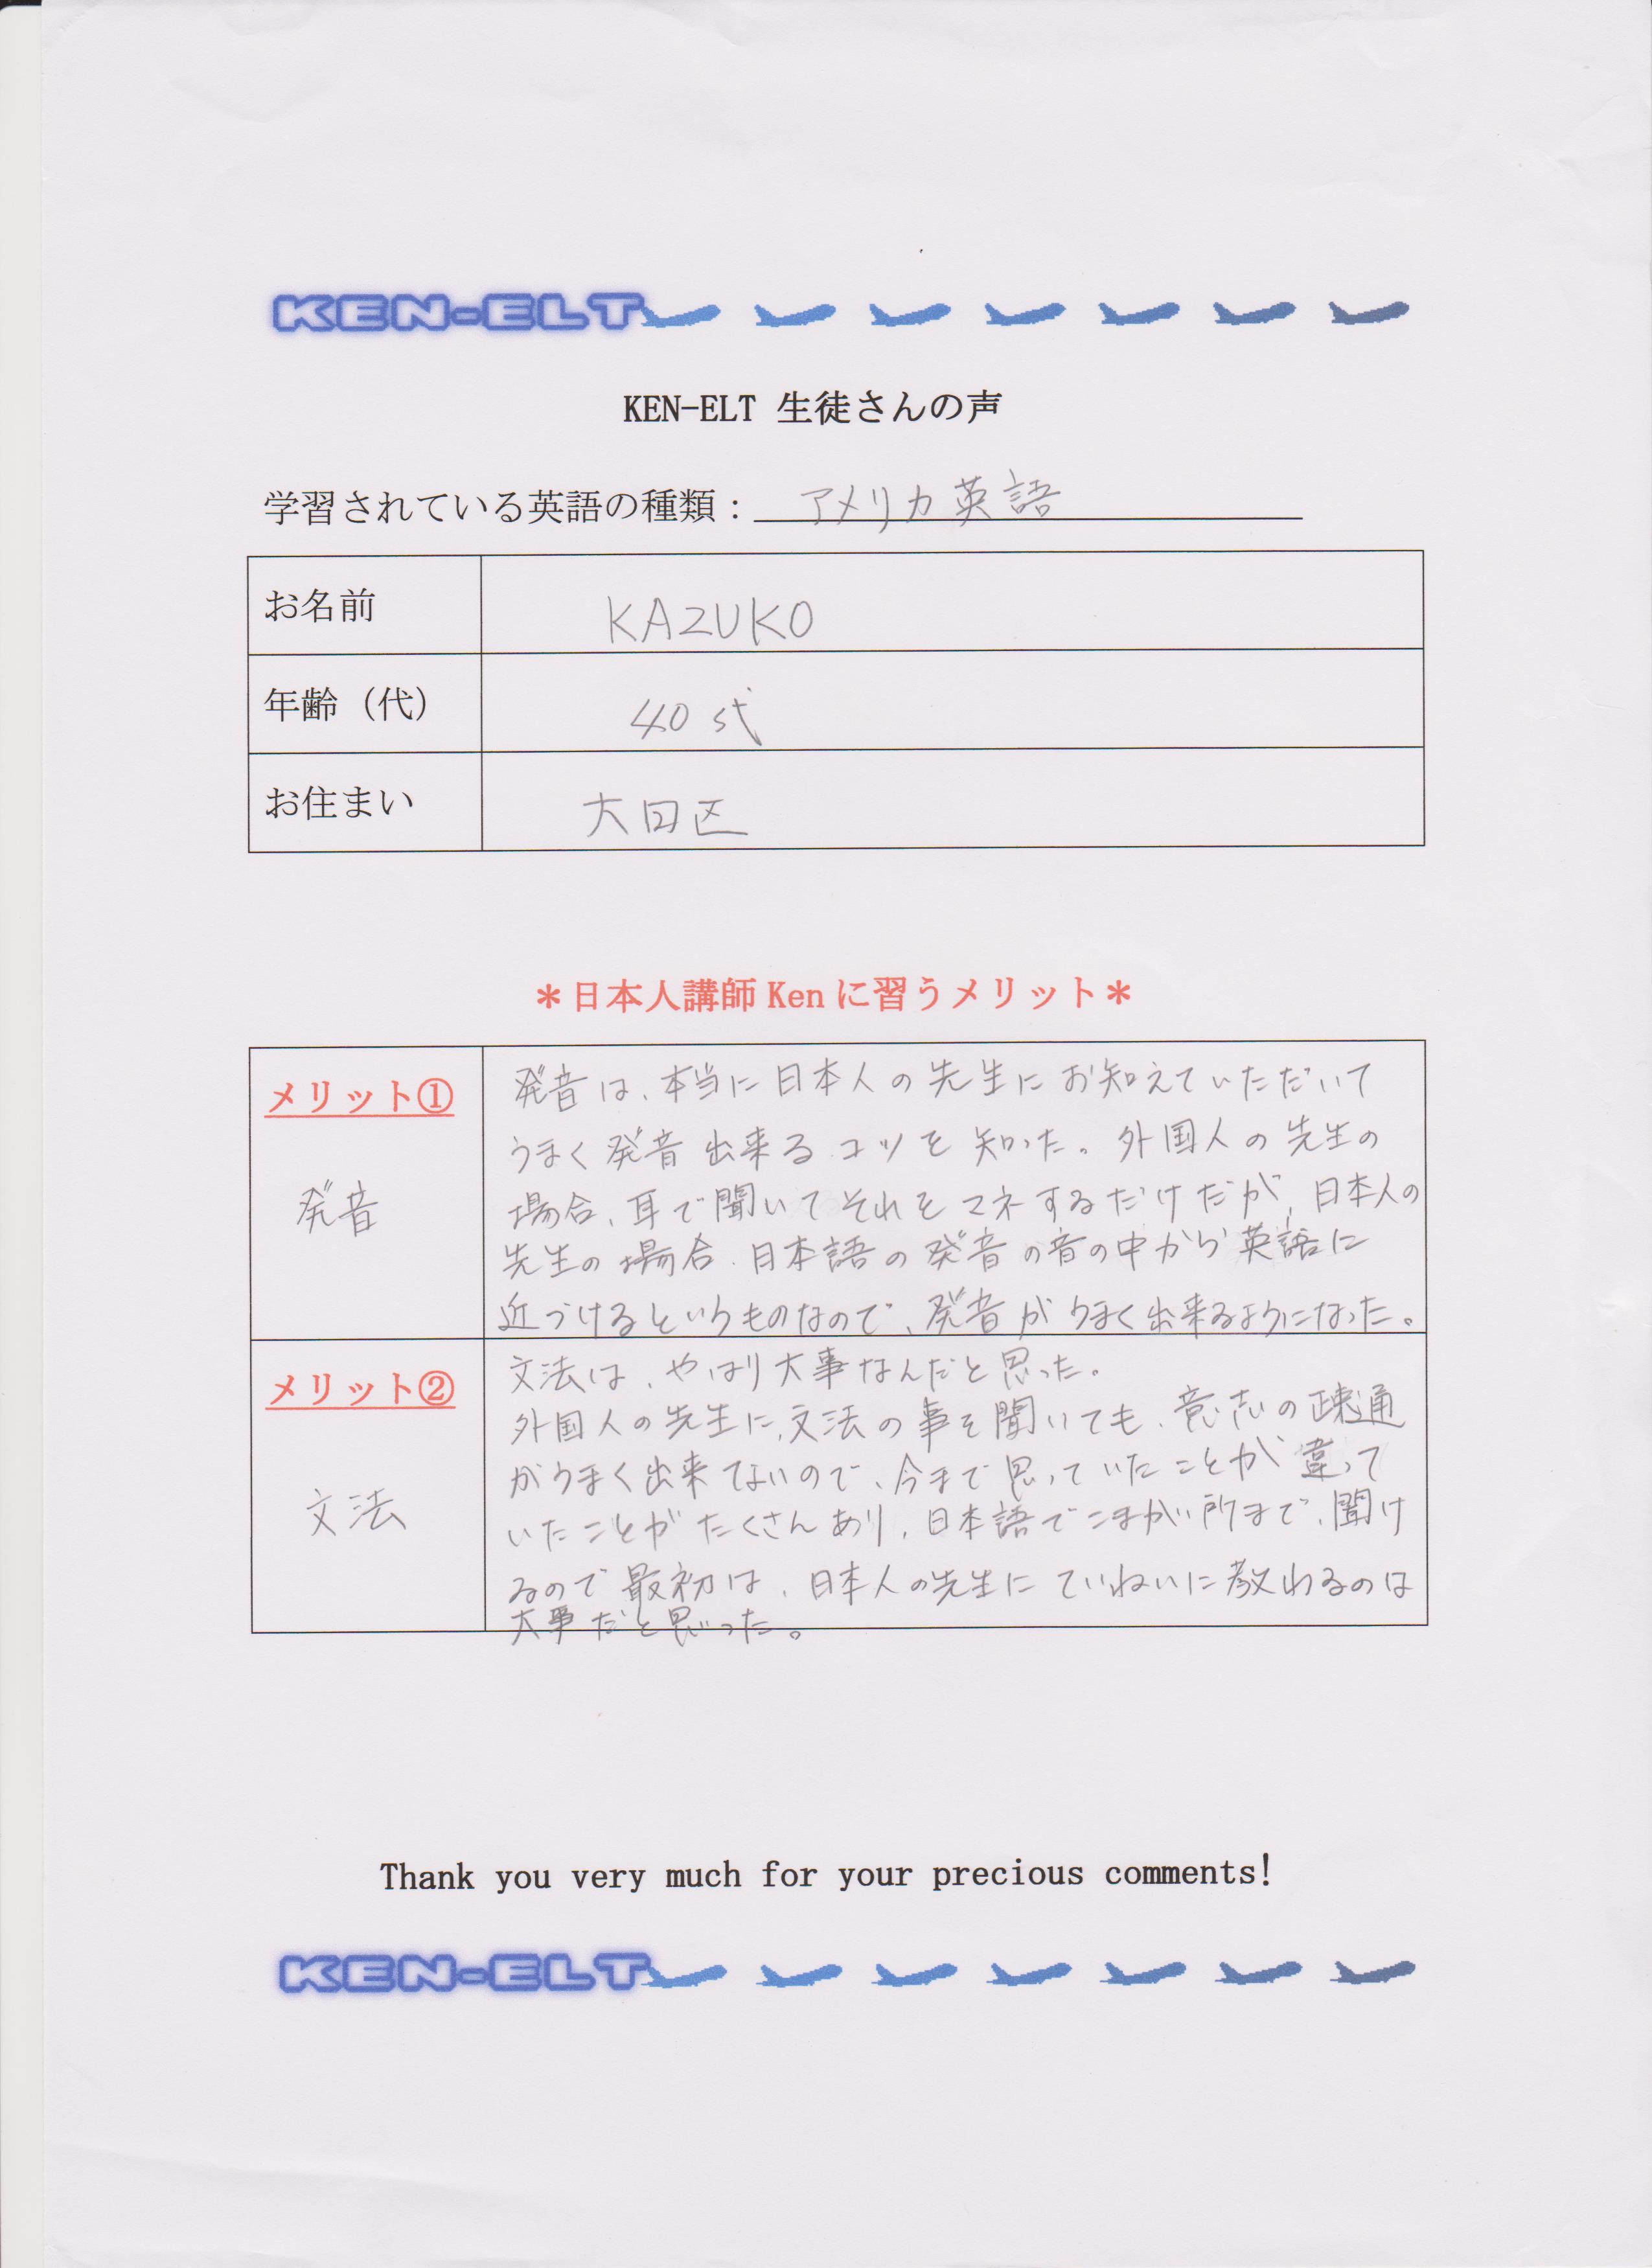 KEN-ELT
KEN-ELT 生徒さんの声
学習されている英語の種類： アメリカ英語
お名前 KAZUKO
年齢（代） 40代
お住まい 大田区
＊日本人講師 Ken に習うメリット＊
メリット①
発音
発音は、本当に日本人の先生にお知えていただいて
うまく発音出来るコツを知った。外国人の先生の
場合、耳で聞いてそれをマネするだけだが、日本人の
先生の場合、日本語の発音の音の中から英語に
近づけるというものなので、発音がうまく出来るようになった。
メリット②
文法
文法は、やはり大事なんだと思った。
外国人の先生に、文法の事を聞いても、意志の疎通
がうまく出来てないので、今まで思っていたことが違って
いたことがたくさんあり、日本語でこまかい所まで、聞け
るので最初は、日本人の先生にていねいに教わるのは
大事だと思った。
Thank you very much for your precious comments!
KEN-ELT